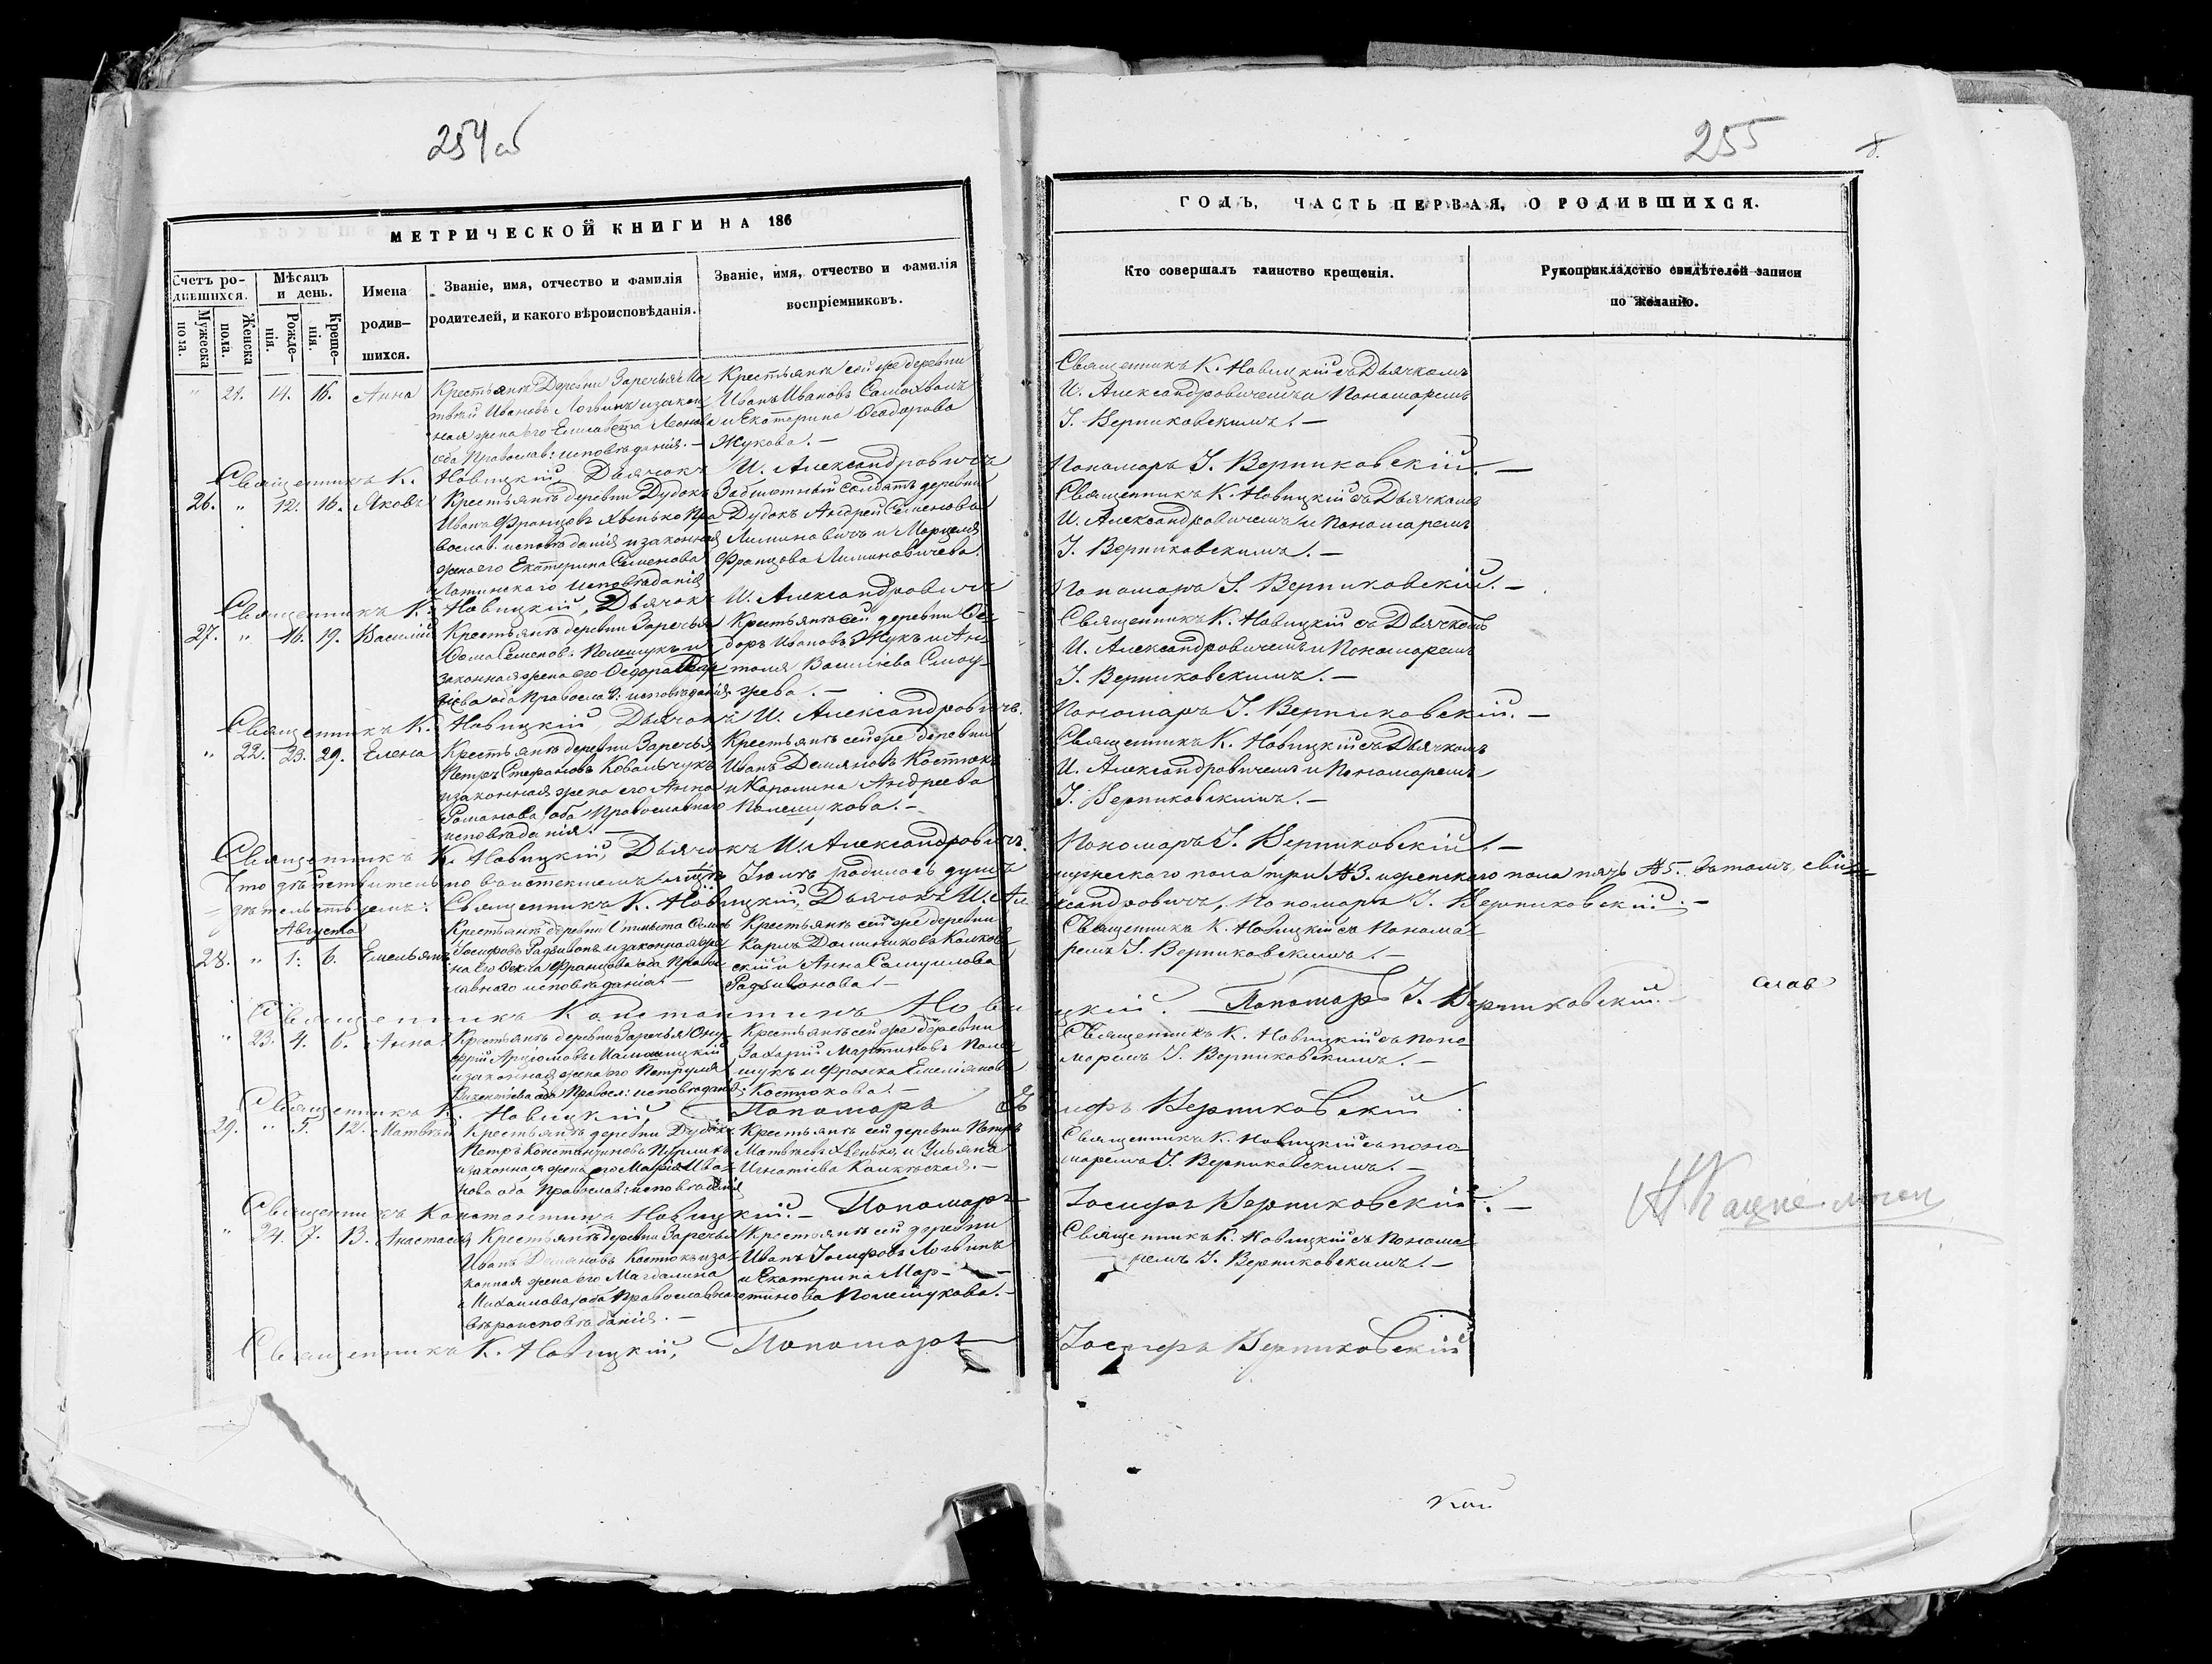 254 об
255
8.
МЕТРИЧЕСКОЙ КНИГИ НА 186
ГОДЪ, ЧАСТЬ ПЕРВАЯ, О РОДИВШИХСЯ.
Счетъ ро-
дившихся.
Мужеска
пола.
Женска
пола.
Мѣсяцъ
и день.
Рожде-
нія.
Креще-
нія.
Имена
родив-
шихся.
Званіе, имя, отчество и фамилія
родителей, и какого вѣроисповѣданія.
Званіе, имя, отчество и фамилія
воспріемниковъ.
Кто совершалъ таинство крещенія.
Рукоприкладство свидѣтелей записи
по желанію.
" 21. 14. 16. Анна
Крестьянъ Деревни Заречья Ма-
твѣй Ивановъ Логвинъ и закон-
ная жена его Елисавета Леонова
оба Православ: исповѣданія. –
Крестьянъ сей же деревни
Иванъ Ивановъ
и Екатерина Феодорова
Жукова. –
Священникъ К. Новицкій съ Дьячкомъ
И. Александровичемъ и Пономаремъ
І. Верниковскимъ. –
Священникъ К. Новицкій, Дьячокъ И. Александровичъ Пономарь І. Верниковскій. –
26. " 12. 16. Яковъ
Крестьянъ деревни Дубокъ
Иванъ Францовъ Хвенько Пра-
вослав. исповѣданія и законная
жена его Екатерина Семенова
Латинскаго исповѣданія
Забилетный Солдатъ деревни
Дубокъ Андрей Семеновъ
Лиминовичъ и Марцеля
Францова Лиминовичева.
Священникъ К. Новицкій съ Дьячкомъ
И. Александровичемъ и Пономаремъ
І. Верниковскимъ. –
Священникъ К. Новицкій, Дьячокъ И. Александровичъ Пономарь І. Верниковскій. –
27. " 16. 19. Василій
Крестьянъ деревни Заречья
Ѳома Семенов. Полещукъ и
законная жена его Ѳедора
оба Православ. исповѣданія
Крестьянъ сей деревни Ѳе-
доръ Ивановъ Жукъ и Ан-
толя Василіева
Священникъ К. Новицкій съ Дьячкомъ
И. Александровичемъ и Пономаремъ
І. Верниковскимъ. –
Священникъ К. Новицкій, Дьячокъ И. Александровичъ. Пономарь І. Верниковскій. –
" 22. 23. 29. Елена
Крестьянъ деревни Заречья
Петръ Стефановъ Ковальчукъ
и законная жена его Анна
Романова, оба Православнаго
исповѣданія. –
Крестьянъ сей же деревни
Иванъ Демяновъ Костюкъ
и Каролина Андреева
Полещукова. –
Священникъ К. Новицкій съ Дьячкомъ
И. Александровичемъ и Пономаремъ
І. Верниковскимъ. –
Священникъ К. Новицкій, Дьячокъ И. Александровичъ. Пономарь І. Верниковскій. –
Что дѣйствительно в истекшемъ м-цѣ Іюлѣ родилось душъ мужескаго пола три №3. и женскаго пола пять №5. въ томъ, сви-
дѣтельствуемъ: Священникъ К. Новицкій, Дьячокъ И. Александровичъ, Пономарь І. Верниковскій. –
Августа
28. " 1. 6. Емельянъ
Іосифовъ Радзивонъ и законная же-
на его Ѳекла Францова оба Право-
славнаго исповѣданія. –
Крестьянъ сей же деревни
Карлъ Доминиковъ Колков-
скій и Анна Самуилова
Радзивонова. –
Священникъ К. Новицкій съ Понома-
ремъ І. Верниковскимъ. –
Священникъ Константинъ Новицкій. – Пономарь І. Верниковскій. –
слав
" 23. 4. 6. Анна
Крестьянъ деревни Заречья Ону-
фрій
и законная жена его Петруля
Викентіева оба Правосл: исповѣданія
Крестьянъ сей же деревни
Захарій Мартиновъ Поле-
щукъ и Франка Емеліянова
Костюкова. –
Священникъ К. Новицкій съ Поно-
маремъ І. Верниковскимъ. –
Священникъ К. Новицкій, Пономарь Іосифъ Верниковскій.
29. " 5. 12. Матвѣй
Крестьянъ деревни Дубокъ
Петръ Константиновъ
и законная жена его Марія Ива-
нова оба Православ: исповѣданія
Крестьянъ сей деревни Петръ
Матвѣевъ Хвенько, и Ульяна
Игнатіева
Священникъ К. Новицкій съ Поно-
маремъ І. Верниковскимъ. –
Священникъ Константинъ Новицкій. – Пономарь Іосифъ Верниковскій. –
" 24. 7. 13. Анастасія
Крестьянъ деревни Заречья
Иванъ Демяновъ Костюкъ и за-
конная жена его Магдалина
Михаилова, оба Православнаго
вѣроисповѣданія. –
Крестьянъ сей деревни
Иванъ Іосифовъ Логвинъ
и Екатерина Мар-
тинова Полещукова. –
Священникъ К. Новицкій съ Понома-
ремъ І. Верниковскимъ. –
Священникъ К. Новицкій, Пономарь Іосифъ Верниковскій